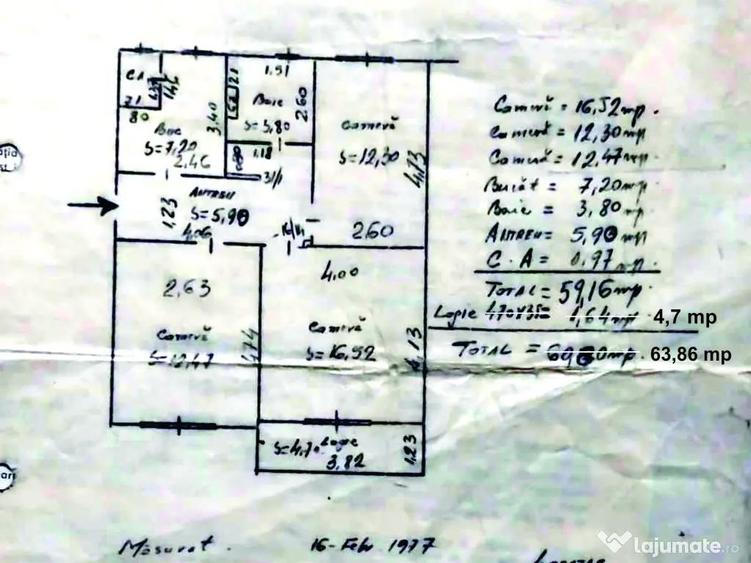 C.A
80
Baie
S=7,20
2,46
3,40
1,51
Baie
S=3,80
2,60
1,18
Cameră
S=12,30
4,73
2,60
Antreu
S=5,90
1,23
4,06
2,63
Cameră
S=12,47
4,74
4,00
Cameră
S=16,52
4,13
S=4,70 Logie
3,82
1,23
Cameră = 16,52 mp.
Cameră = 12,30 mp
Cameră = 12,47 mp
Bucăt = 7,20 mp
Baie = 3,80 mp
Antreu = 5,90 mp
C.A = 0,97 mp
Total = 59,16 mp
Logie 4,64 mp 4,7 mp
Total = 63,86 mp
Măsurat. 16-Febr 1977
lajumate.ro